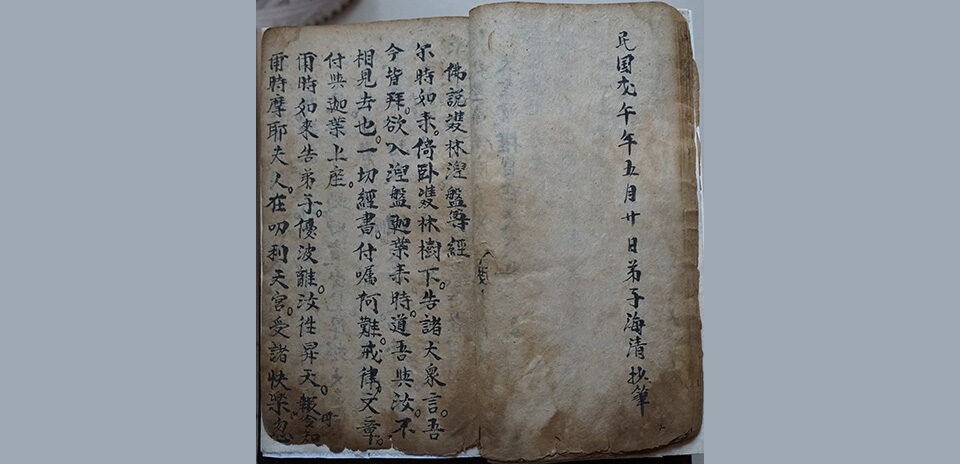 民国戊午年五月廿日弟子海清抄筆
佛説雙林湼盤尊經
尓時如来。倚卧雙林樹下。告諸大衆言。吾
今皆拜。欲入湼盤迦葉来時。道吾與汝。不
相見去也。一切經書。付嘱阿難。戒律文章。
付與迦葉上座。
爾時如来告弟子。優波離。汝徃昇天。報母令知
爾時摩耶夫人。在叨利天宮。受諸快樂忽